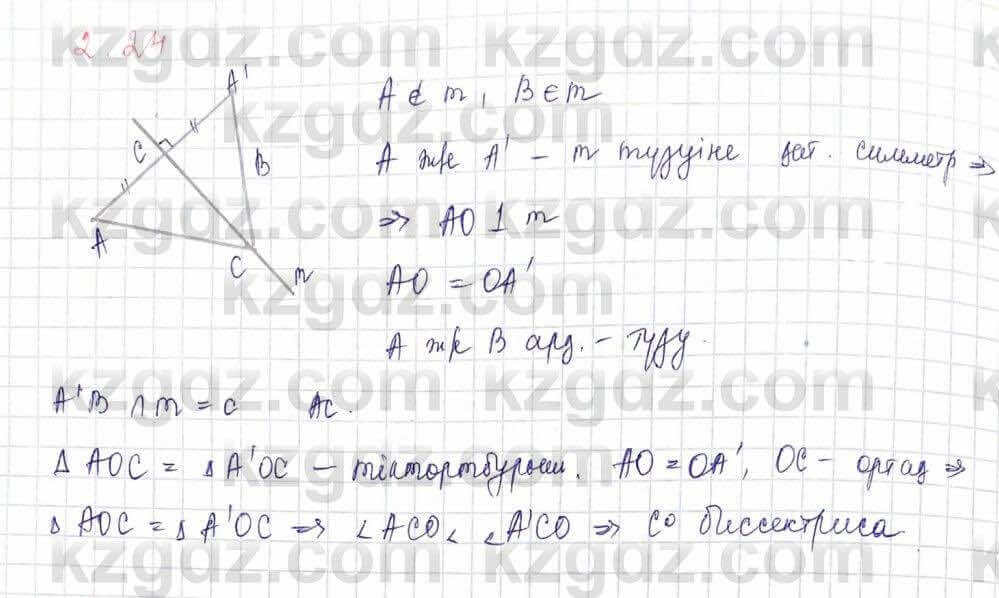 2.24
kzgdz.com
A'
C
B
A
C
m
A ∉ m, B ∈ m
A ж/е A' – m түзуіне қат. симметр ⇒
⇒ AO ⊥ m
AO = OA'
A ж/е B арқ. – түзу.
A'B ∩ m = C AC.
Δ AOC = Δ A'OC – тіктөртбұрыш. AO = OA', OC – ортақ ⇒
Δ AOC = Δ A'OC ⇒ ∠ACO < ∠A'CO ⇒ CO биссектриса